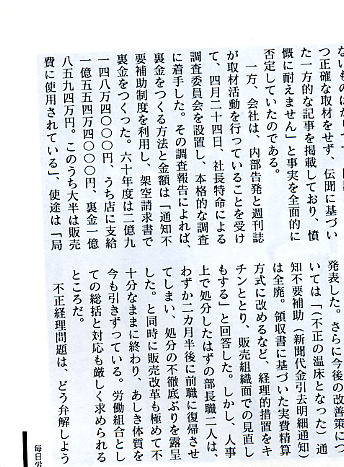 ないものばか
つ正確な取材をせず、伝聞に基づい
た一方的な記事を掲載しており、憤
慨に耐えません」と事実を全面的に
否定していたのである。
一方、会社は、内部告発と週刊誌
が取材活動を行っていることを受け
て、四月二十四日、社長特命による
調査委員会を設置し、本格的な調査
に着手した。その調査報告によれば、
裏金をつくる方法と金額は「通知不
要補助制度を利用し、架空請求書で
裏金をつくった。六十年度は二億九
一四八万四〇〇〇円、うち店に支給
一億五五四万四〇〇〇円、裏金一億
八五九四万円。このうち大半は販売
費に使用されている」、使途は「局
発表した。さらに今後の改善策につ
いては「(不正の温床となった)通
知不要補助(新聞代金引去明細通知)
は全廃。領収書に基づいた実費精算
方式に改めるなど、経理的措置をキ
チンととり、販売組織面での見直し
もする」と回答した。しかし、人事
上で処分したはずの部長職二人は、
わずか二カ月半後に前職に復帰させ
てしまい、処分の不徹底ぶりを露呈
した。と同時に販売改革も極めて不
十分なままに終わり、あしき体質を
今も引きずっている。労働組合とし
ての総括と対応も厳しく求められる
ところだ。
不正経理問題は、どう弁解しよう
毎日労